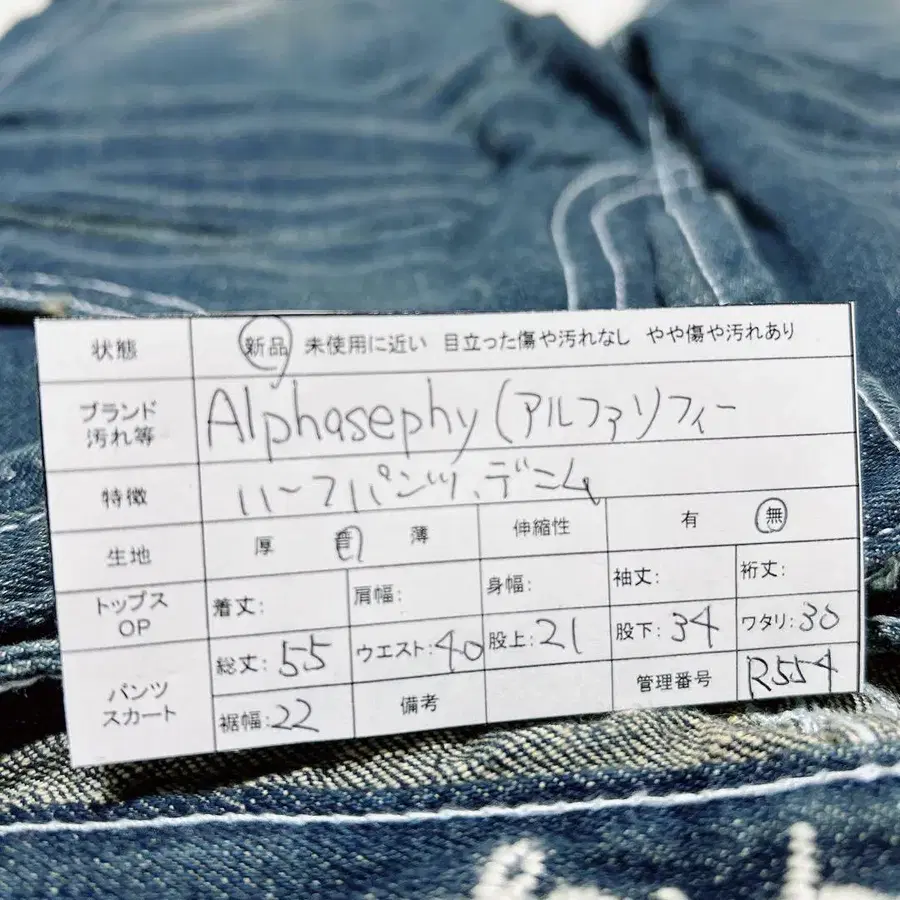 状態 新品 未使用に近い 目立った傷や汚れなし やや傷や汚れあり
ブランド 汚れ等 Alphasephy (アルファソフィー
特徴 ハーフパンツ、デニム
生地 厚 普 薄 伸縮性 有 無
トップス OP 着丈: 肩幅: 身幅: 袖丈: 裄丈:
パンツ スカート 総丈: 55 ウエスト: 40 股上: 21 股下: 34 ワタリ: 30
裾幅: 22 備考 管理番号 R554